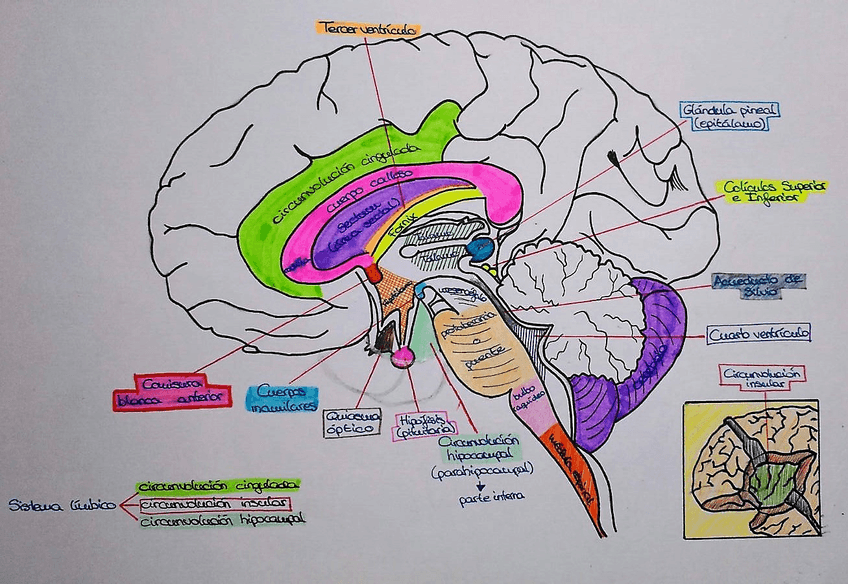 Tercer ventrículo
Glándula pineal
(epitálamo)
Colículos Superior
e Inferior
Acueducto de
Silvio
Cuarto ventrículo
Circunvolución
insular
circunvolución cingulada
cuerpo calloso
septum
Fornix
mesencéfalo
protuberancia
o
puente
bulbo
raquídeo
médula espinal
Comisura
blanca anterior
Cuerpos
mamilares
Quiasma
óptico
Hipófisis
(pituitaria)
Circunvolución
hipocampal
(parahipocampal)
parte interna
Sistema límbico
circunvolución cingulada
circunvolución insular
circunvolución hipocampal